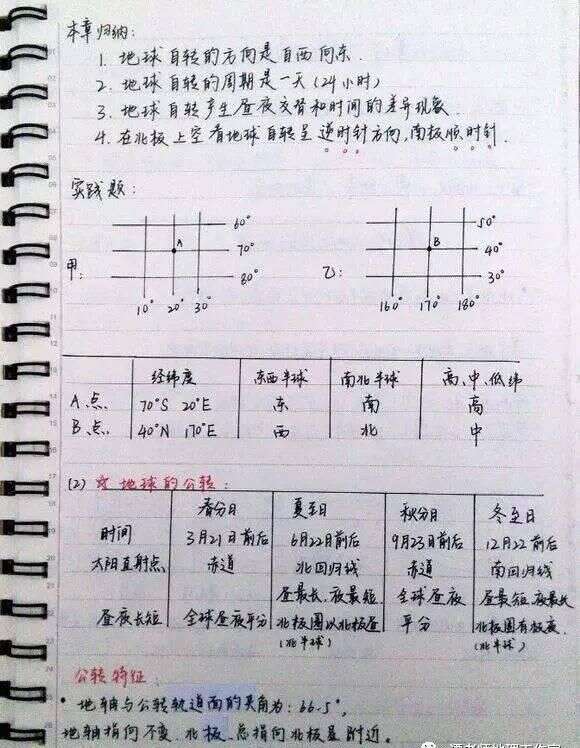 本章归纳:
1. 地球自转的方向是自西向东.
2. 地球自转的周期是一天(24小时)
3. 地球自转产生昼夜交替和时间的差异现象.
4. 在北极上空看地球自转呈逆时针方向,南极顺时针.
实践题:
60° 50°
A 70° B 40°
甲: 80° 乙: 30°
10° 20° 30° 160° 170° 180°
经纬度 东西半球 南北半球 高、中、低纬
A点 70°S 20°E 东 南 高
B点 40°N 170°E 西 北 中
(2) 地球的公转:
春分日 夏至日 秋分日 冬至日
时间 3月21日前后 6月22日前后 9月23日前后 12月22前后
太阳直射点 赤道 北回归线 赤道 南回归线
昼最长、夜最短 全球昼夜 昼最短、夜最长
昼夜长短 全球昼夜平分 北极圈以北极昼 平分 北极圈有极夜.
(北半球) (北半球)
公转特征:
• 地轴与公转轨道面的夹角为:66.5°,
地轴指向不变.北极总指向北极星附近。